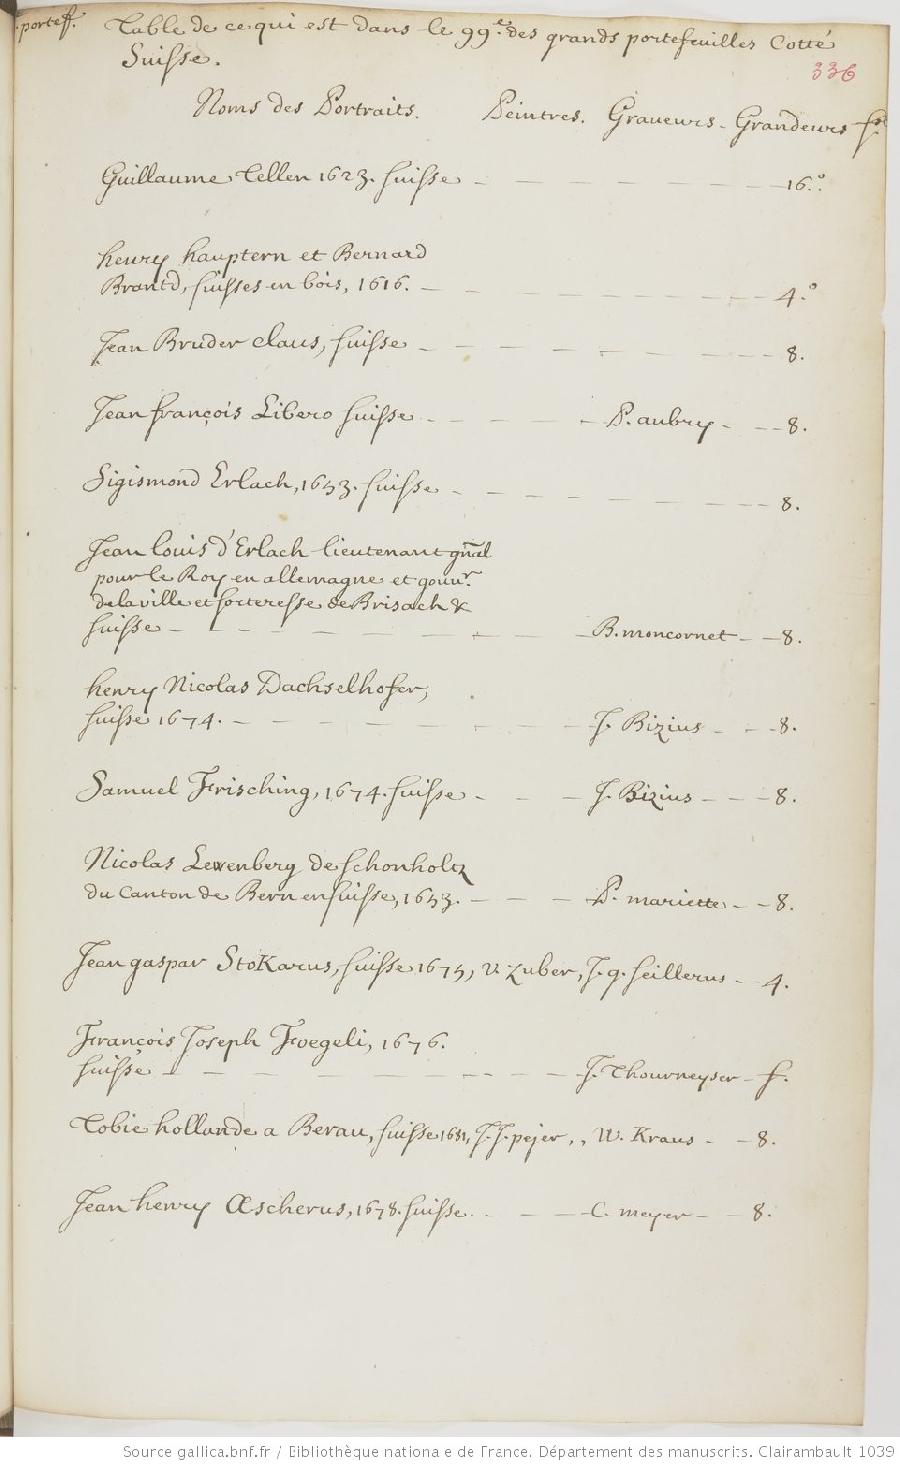 portef.
Table de ce qui est dans le 99e. des grands portefeuilles Cotté
Suisse.
336
Noms des Portraits. Peintres. Graveurs - Grandeurs fo
Guillaume Tellen 1623. suisse - - - - - - - 16.o
henry hauptern et Bernard
Brantd, suisses en bois, 1616. - - - - - - - 4.o
Jean Bruder Claus, suisse - - - - - - - 8.
Jean françois Libero suisse - - - - P. aubry - - - 8.
Sigismond Erlach, 1653. suisse - - - - - - - 8.
Jean louis d'Erlach lieutenant gñal
pour le Roy en allemagne et gouvr.
de la ville et forteresse de Brisach &
suisse - - - - - - - - B. moncornet - - 8.
henry Nicolas Dachselhofer,
suisse 1674. - - - - - - J. Bizius - - - 8.
Samuel Frisching, 1674. suisse - - - J. Bizius - - - 8.
Nicolas Lewenberg de schonholtz
du Canton de Bern en suisse, 1653. - - - P. mariette - - 8.
Jean gaspar Stokarus, suisse 1675, v. zuber, J. g. seillerus - 4.
François Joseph Foegeli, 1676.
suisse - - - - - - - - J. Thourneyser - f.
Tobie hollande a Berau, suisse 1651, J. J. pejer, , W. Kraus - - 8.
Jean henry Œscherus, 1678. suisse. - - - C. meyer - - 8.
Source gallica.bnf.fr / Bibliothèque nationale de France. Département des manuscrits. Clairambault 1039